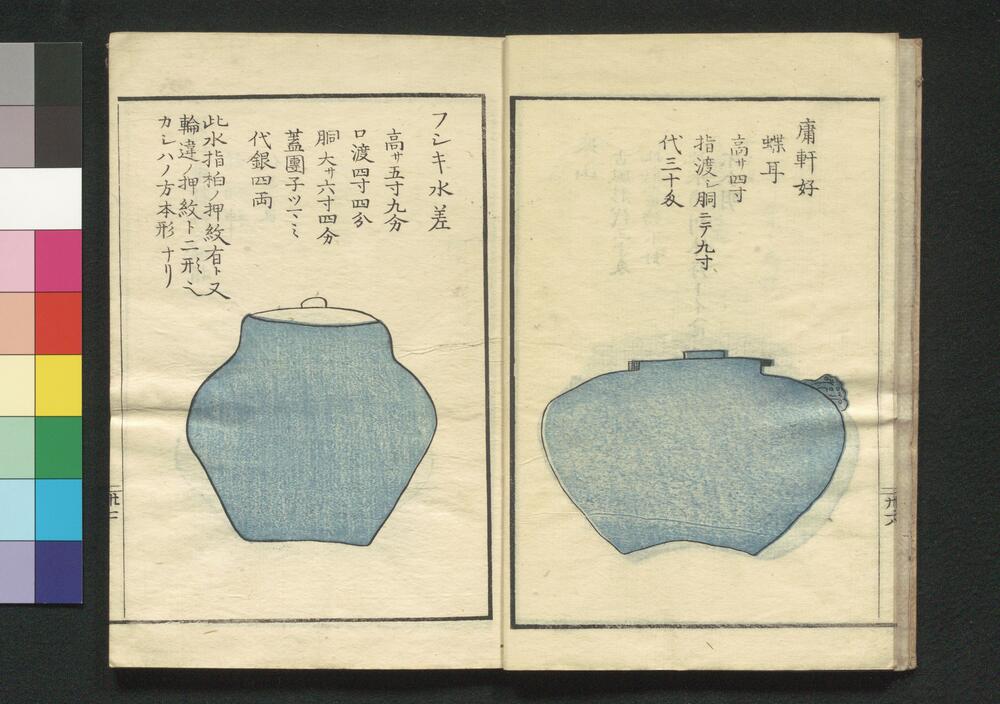 庸軒好
蝶耳
高サ四寸
指渡シ胴ニテ九寸
代三十匁
フシキ水差
高サ五寸九分
口渡四寸四分
胴大サ六寸四分
蓋團子ツマミ
代銀四両
此水指柏ノ押紋有ト又
輪違ノ押紋ト二形之
カシハノ方本形ナリ